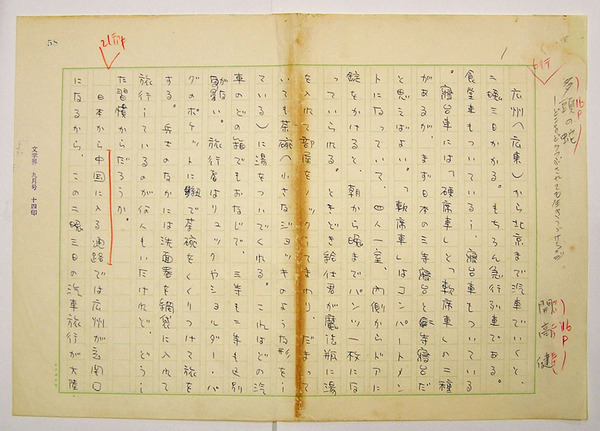 多頭の蛇
開高健
広州(広東)から北京まで汽車でいくと、
二晩三日かかる。もちろん急行列車である。
食堂車もついているし、寝台車もついている
。寝台車には「硬席車」と「軟席車」の二種
があるが、まず日本の三等寝台と二等寝台だ
と思えばよい。「軟席車」はコンパートメン
トになっていて、四人一室、内側からドアに
錠をかけると、朝から晩までパンツ一枚にな
っていられる。ときどき給仕君が魔法瓶に湯
を入れて部屋をノックしてまわり、だまって
いても茶碗(小さなジョッキのような形をし
ている)に湯をついでくれる。これはどの汽
車のどの箱でもおなじで、三等も二等も区別
がない。旅行者はリュックやショルダー・バ
グのポケットに紐で茶碗をくくりつけて旅を
する。兵士のなかには洗面器を網袋に入れて
旅行しているのが何人もいたけれど、どうし
た習慣からだろうか。
日本から中国に入る通路では広州が玄関口
になるから、この二晩三日の汽車旅行が大陸
文学界 九月号 十四印
58